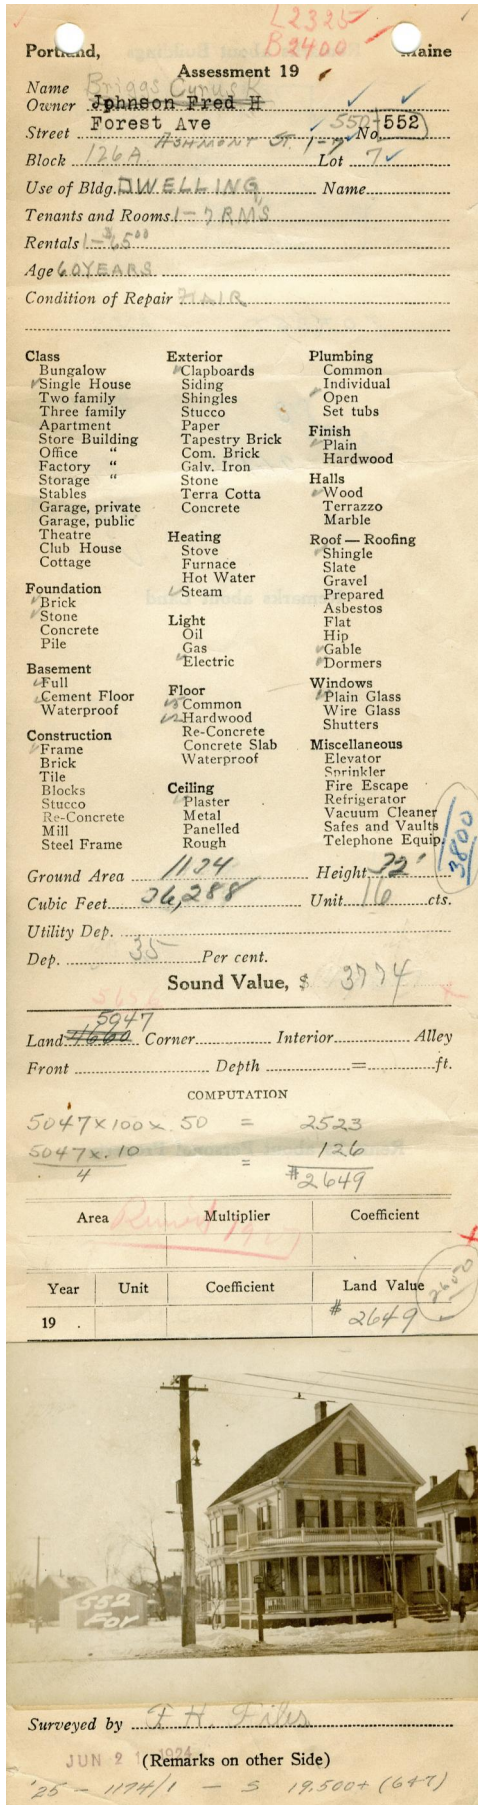 L2325
B2400
Portland, Maine
Assessment 19
Name Briggs Cyrus
Owner Johnson Fred H
Forest Ave 550-552
Street Ashmont St. 1-7 No.
Block 126A Lot 7
Use of Bldg. DWELLING Name
Tenants and Rooms 1-7 RMS
Rentals 1-$65.00
Age 60 YEARS
Condition of Repair FAIR
Class
Bungalow
Single House
Two family
Three family
Apartment
Store Building
Office "
Factory "
Storage "
Stables
Garage, private
Garage, public
Theatre
Club House
Cottage
Foundation
Brick
Stone
Concrete
Pile
Basement
Full
Cement Floor
Waterproof
Construction
Frame
Brick
Tile
Blocks
Stucco
Re-Concrete
Mill
Steel Frame
Exterior
Clapboards
Siding
Shingles
Stucco
Paper
Tapestry Brick
Com. Brick
Galv. Iron
Stone
Terra Cotta
Concrete
Heating
Stove
Furnace
Hot Water
Steam
Light
Oil
Gas
Electric
Floor
Common
Hardwood
Re-Concrete
Concrete Slab
Waterproof
Ceiling
Plaster
Metal
Panelled
Rough
Plumbing
Common
Individual
Open
Set tubs
Finish
Plain
Hardwood
Halls
Wood
Terrazzo
Marble
Roof — Roofing
Shingle
Slate
Gravel
Prepared
Asbestos
Flat
Hip
Gable
Dormers
Windows
Plain Glass
Wire Glass
Shutters
Miscellaneous
Elevator
Sprinkler
Fire Escape
Refrigerator
Vacuum Cleaner
Safes and Vaults
Telephone Equip.
3800
Ground Area 1134 Height 32'
Cubic Feet 36,288 Unit 16 cts.
Utility Dep.
Dep. 35 Per cent.
Sound Value, $ 3774
5047
Land Corner Interior Alley
Front Depth = ft.
COMPUTATION
5047 x 100 x .50 = 2523
5047 x .10 = 126
4 $2649
Area Multiplier Coefficient
Year Unit Coefficient Land Value
2650
19 . # 2649
552
For
Surveyed by F. H. Files
JUN 21 1924 (Remarks on other Side)
'25 - 1174/1 - S 19,500+ (6+7)